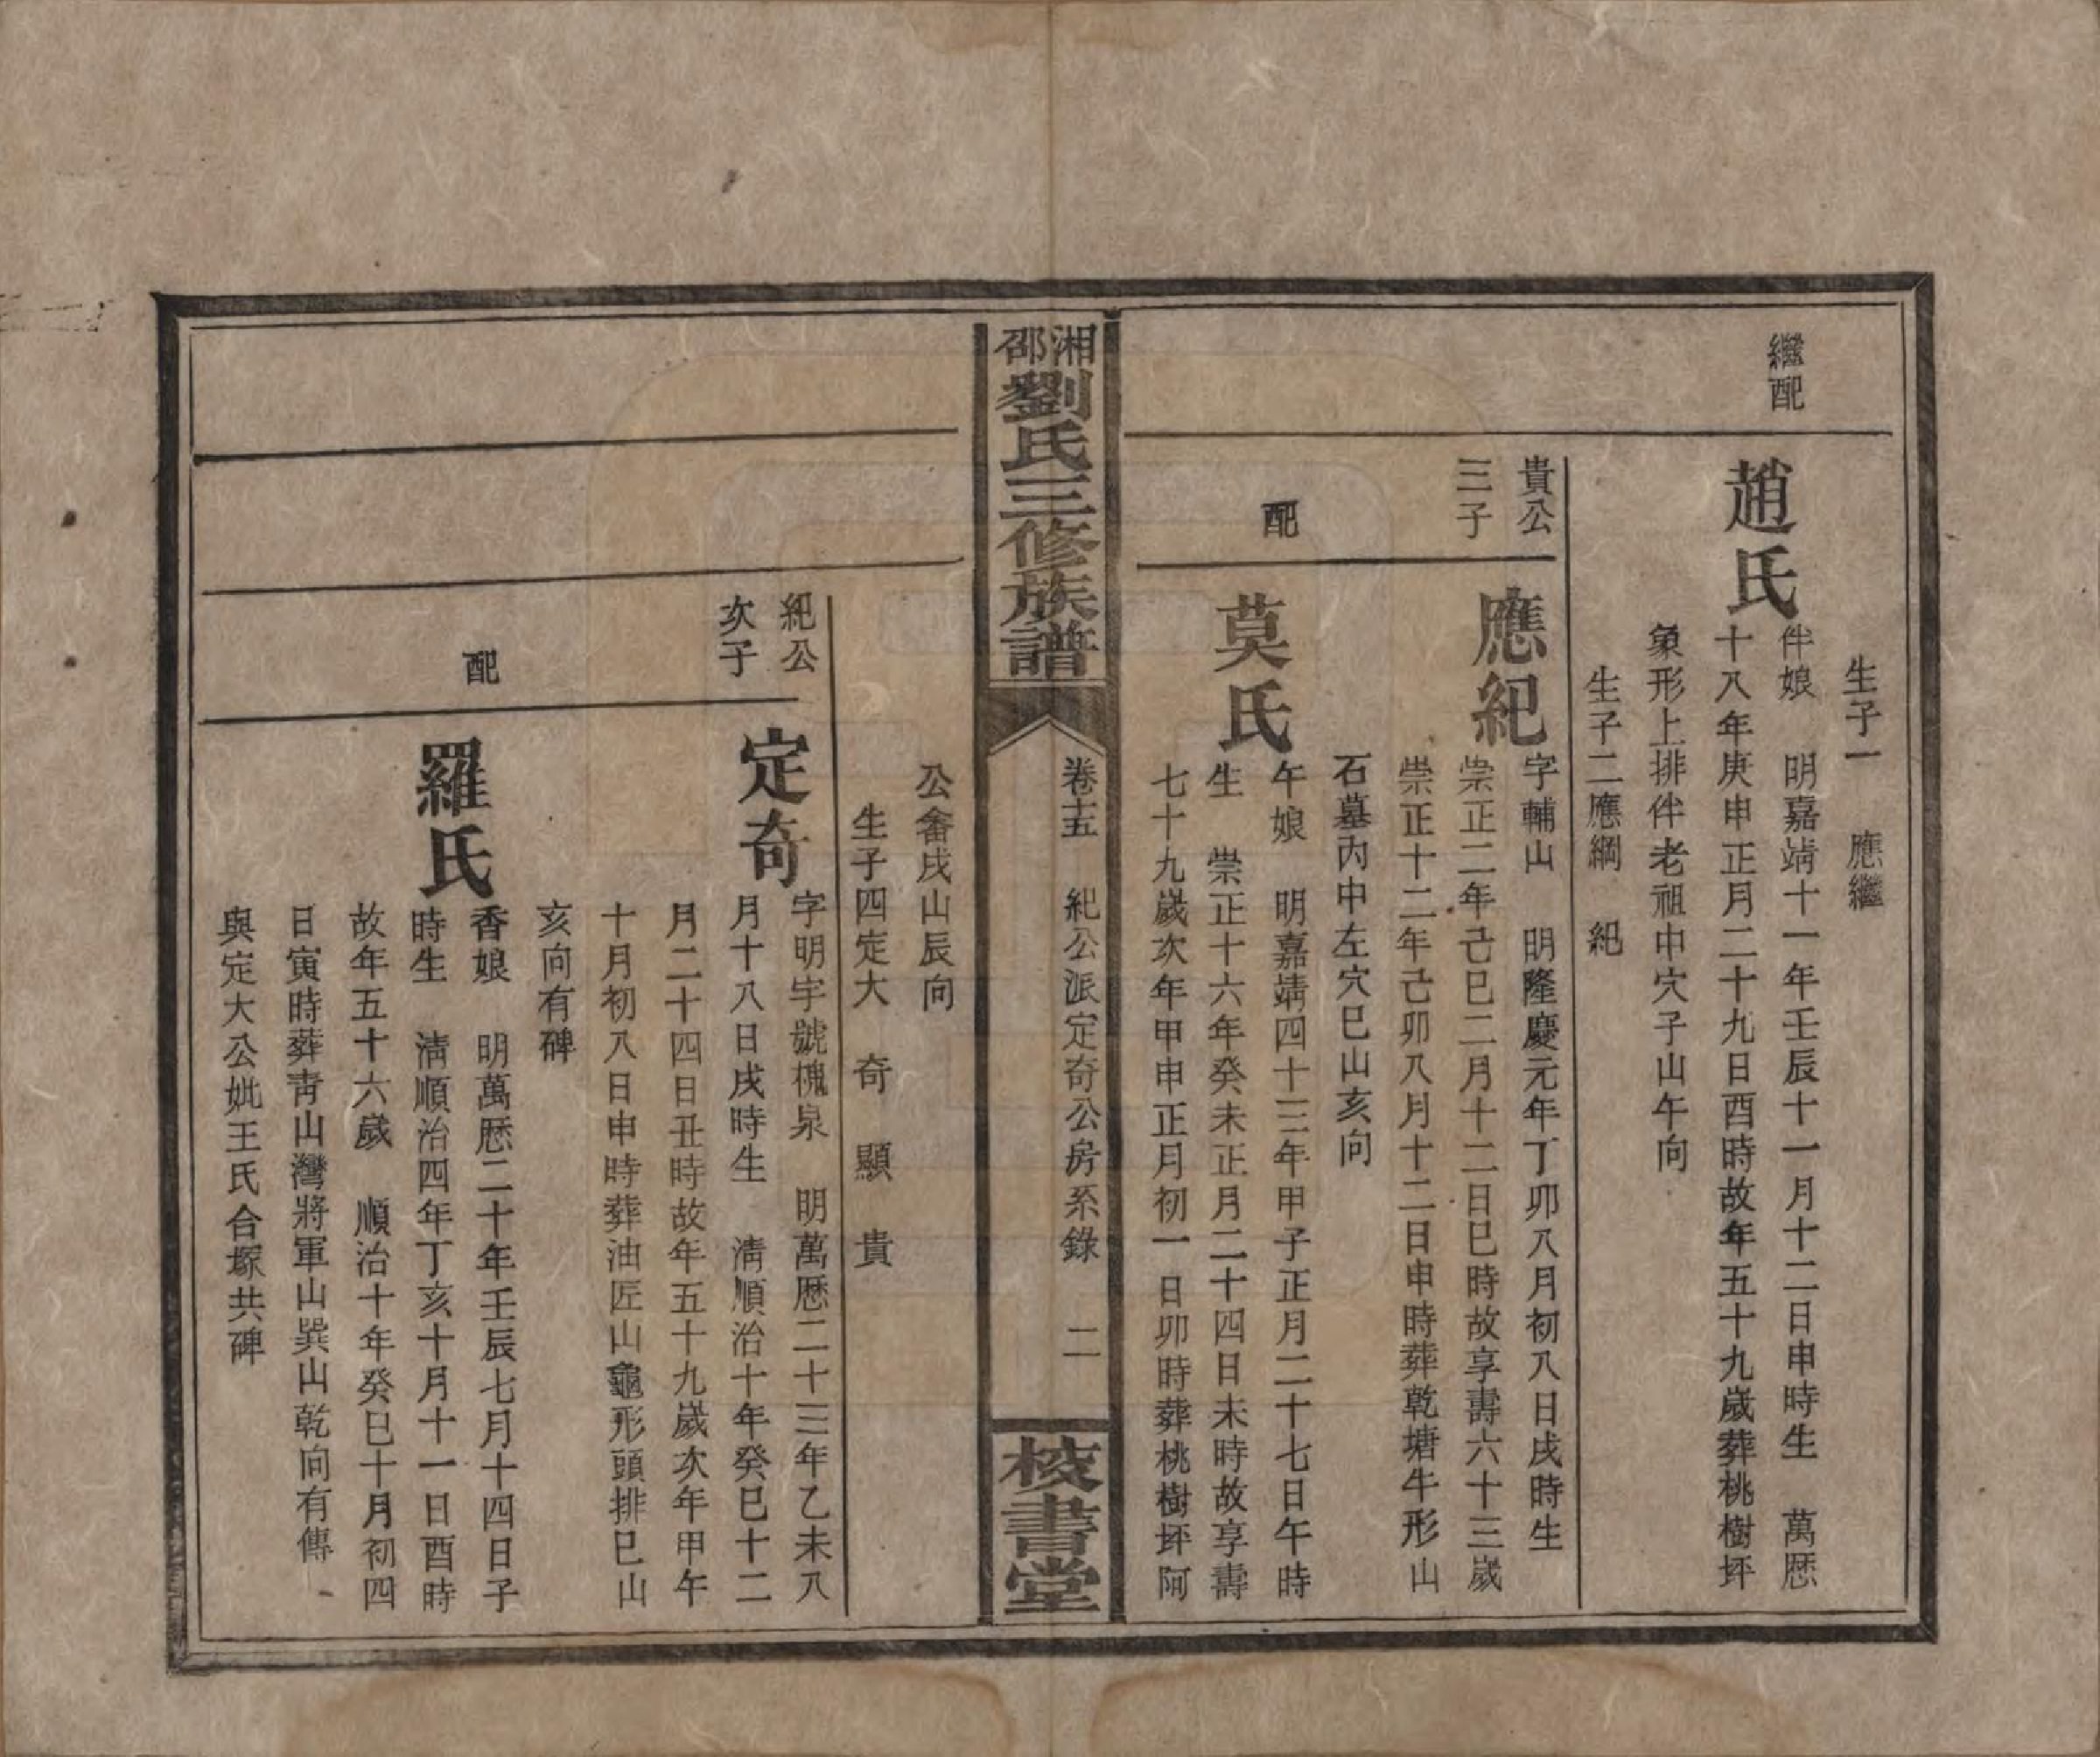 生子一　應繼
繼配
趙氏
伴娘　明嘉靖十一年壬辰十一月十二日申時生　萬歷
十八年庚申正月二十九日酉時故年五十九歲葬桃樹坪
象形上排伴老祖中穴子山午向
生子二應綱　紀
貴公
三子
應紀
字輔山　明隆慶元年丁卯八月初八日戌時生
崇正二年己巳二月十二日巳時故享壽六十三歲
崇正十二年己卯八月十二日申時葬乾塘牛形山
石墓內中左穴巳山亥向
配
莫氏
午娘　明嘉靖四十三年甲子正月二十七日午時
生　崇正十六年癸未正月二十四日未時故享壽
七十九歲次年甲申正月初一日卯時葬桃樹坪阿
湘邵劉氏三修族譜
卷十五　紀公派定奇公房系錄　二
校書堂
公畬戌山辰向
生子四定大　奇　顯　貴
紀公
次子
定奇
字明宇號槐泉　明萬歷二十三年乙未八
月十八日戌時生　清順治十年癸巳十二
月二十四日丑時故年五十九歲次年甲午
十月初八日申時葬油匠山龜形頭排巳山
亥向有碑
配
羅氏
香娘　明萬歷二十年壬辰七月十四日子
時生　清順治四年丁亥十月十一日酉時
故年五十六歲　順治十年癸巳十月初四
日寅時葬靑山灣將軍山巽山乾向有傳
與定大公妣王氏合塚共碑